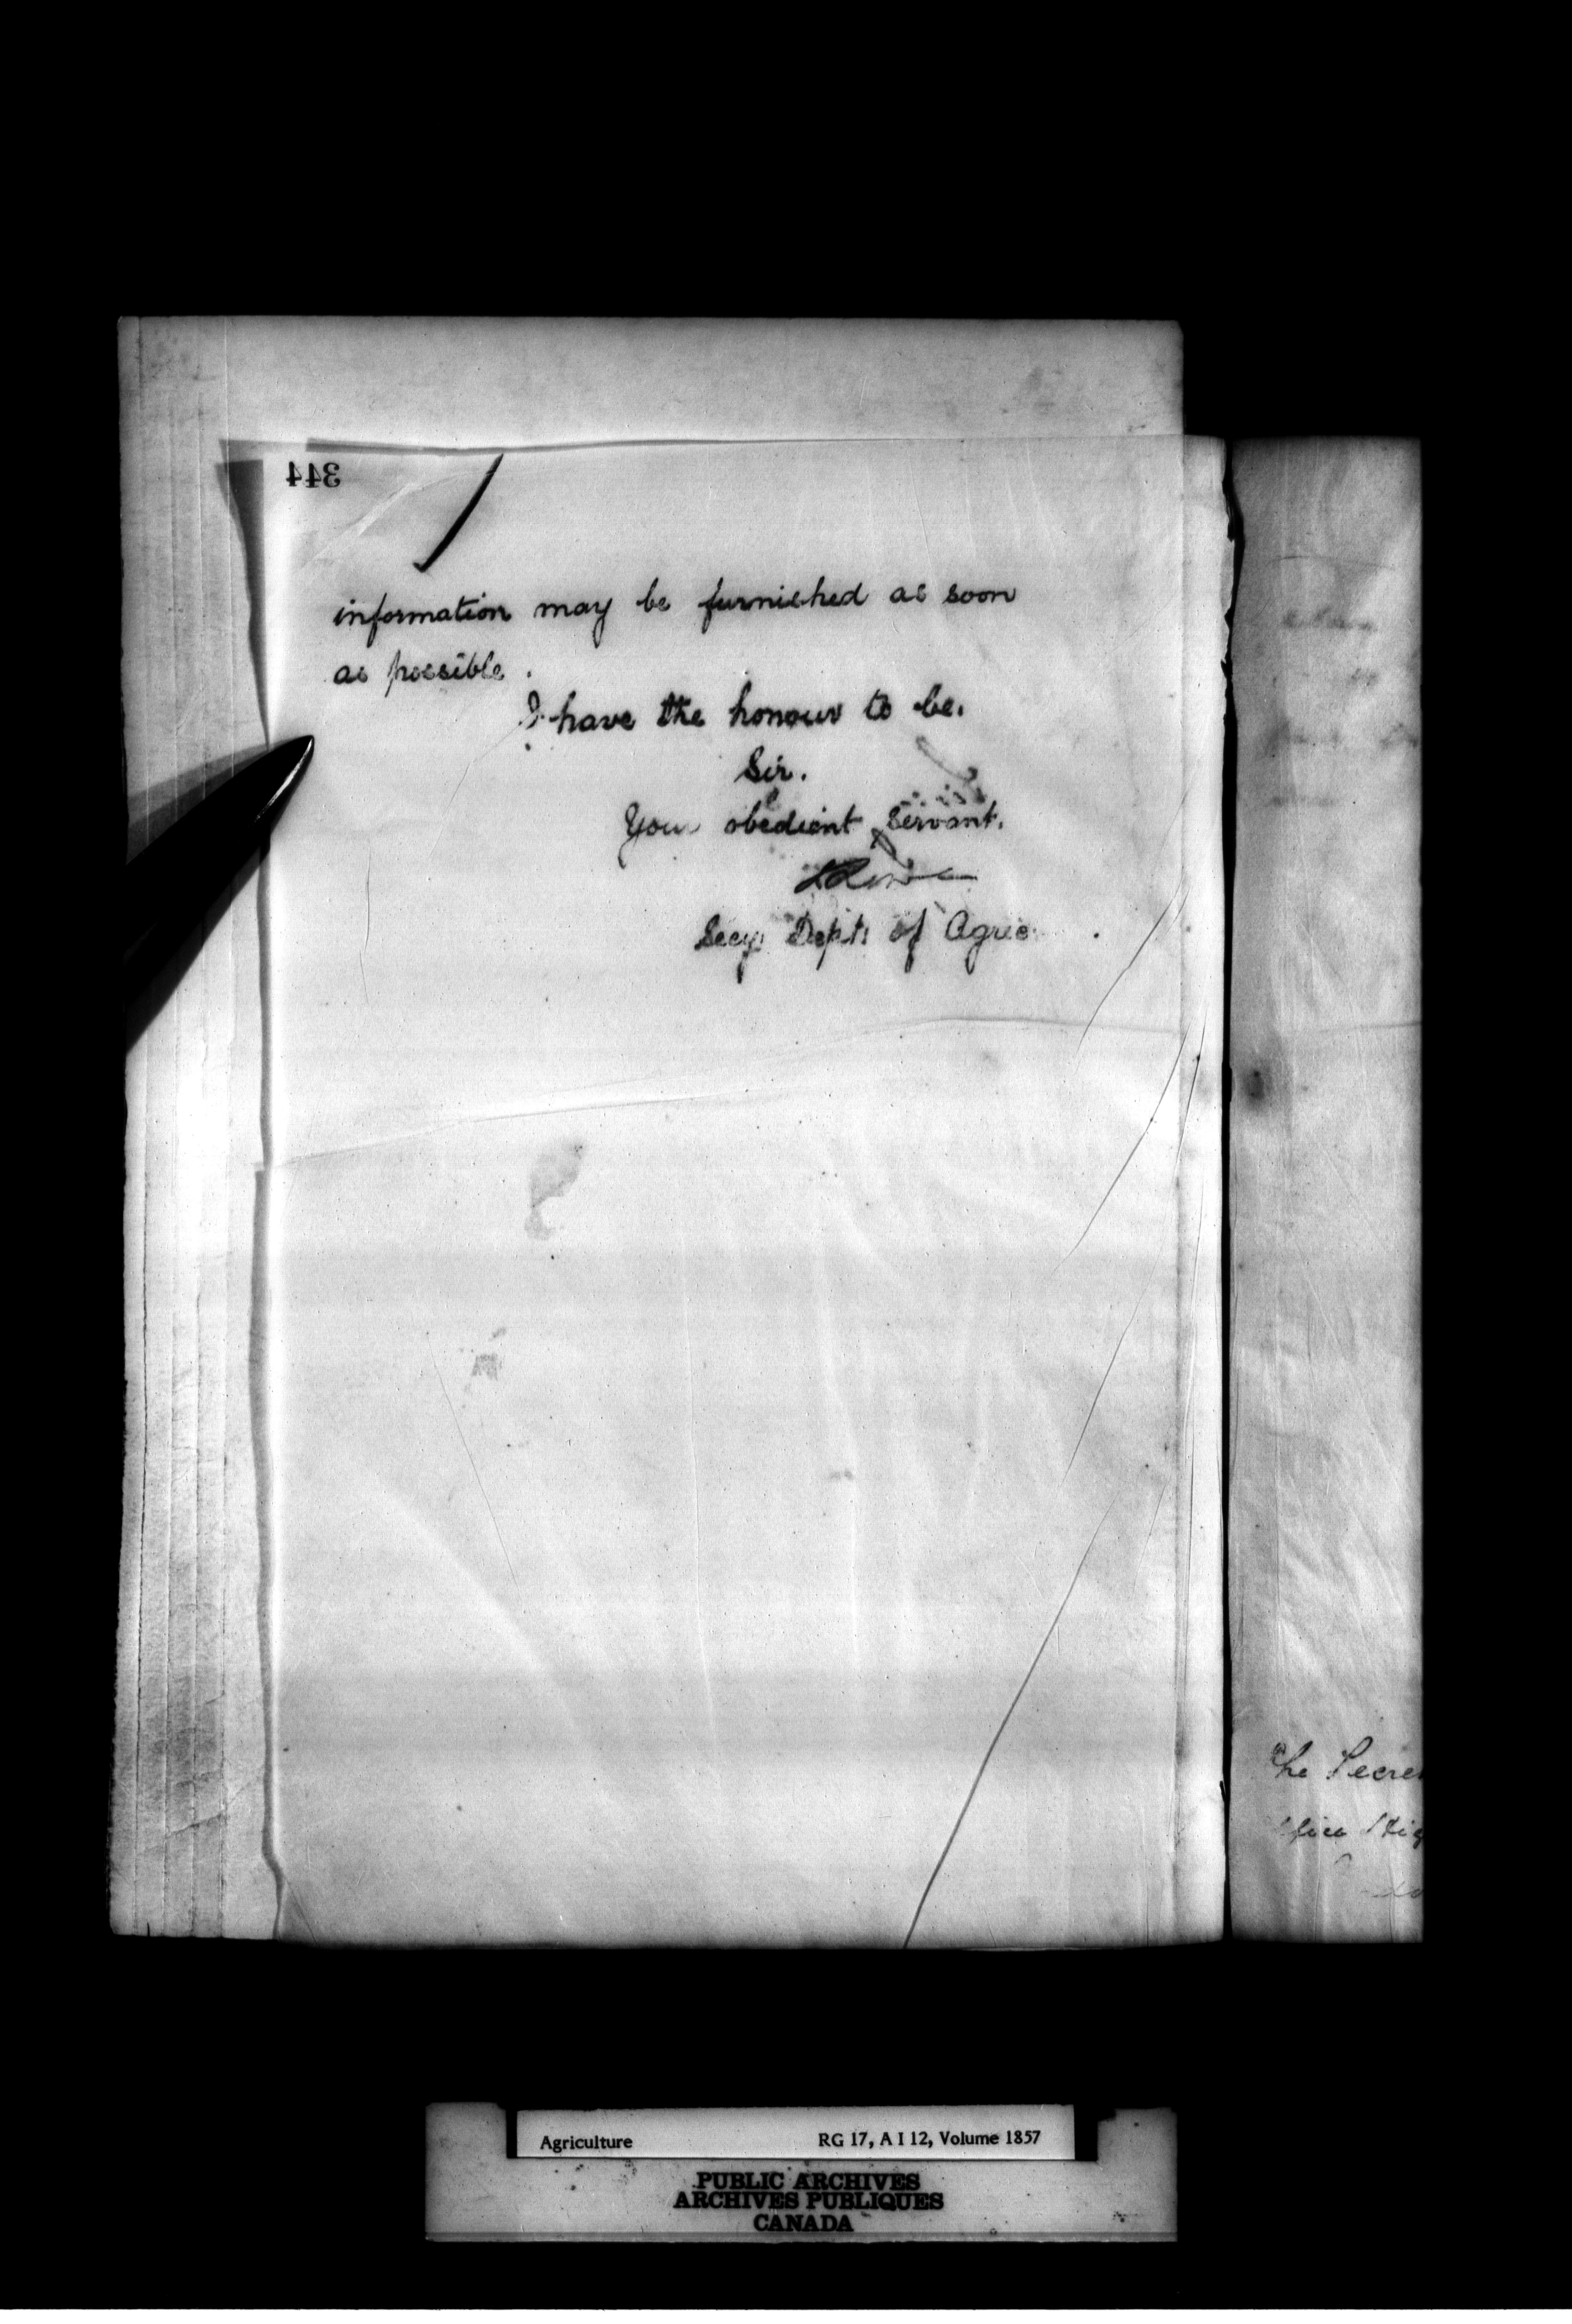 344
information may be furnished as soon
as possible.
I have the honour to be.
Sir.
Your obedient Servant.
Secy. Dept. of Agric
The Secre
Agriculture RG 17, A I 12, Volume 1857
PUBLIC ARCHIVES
ARCHIVES PUBLIQUES
CANADA